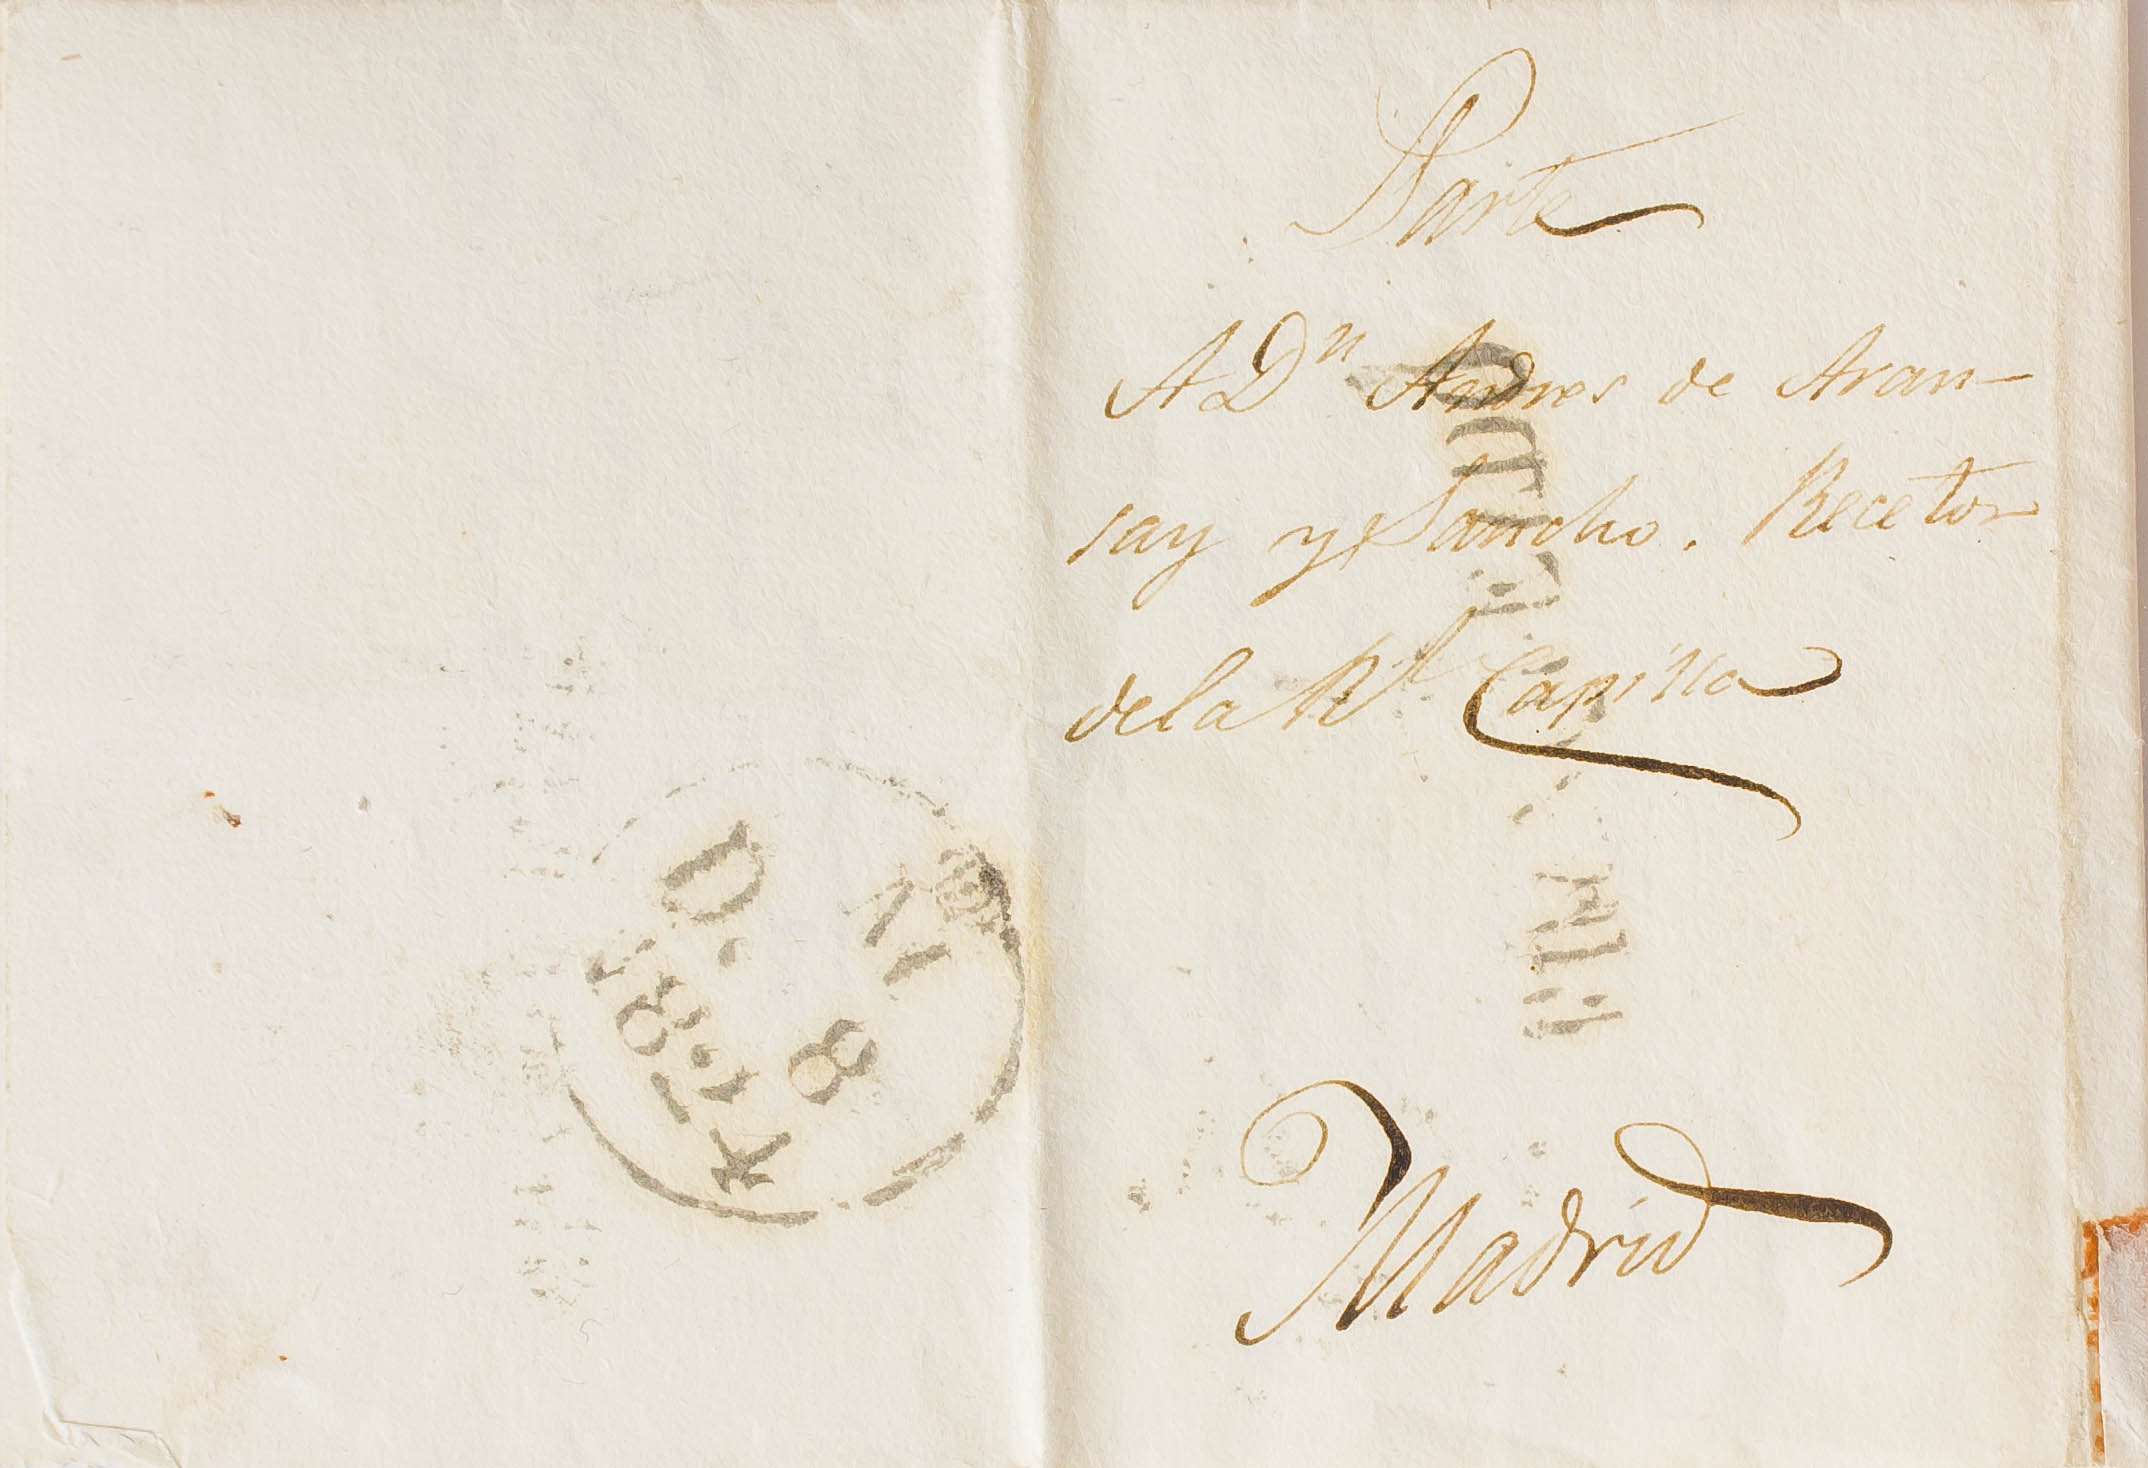 Parte
A Dn Andres de Aran-
say y Sancho. Recetor
de la Rl Capilla
Madrid
8